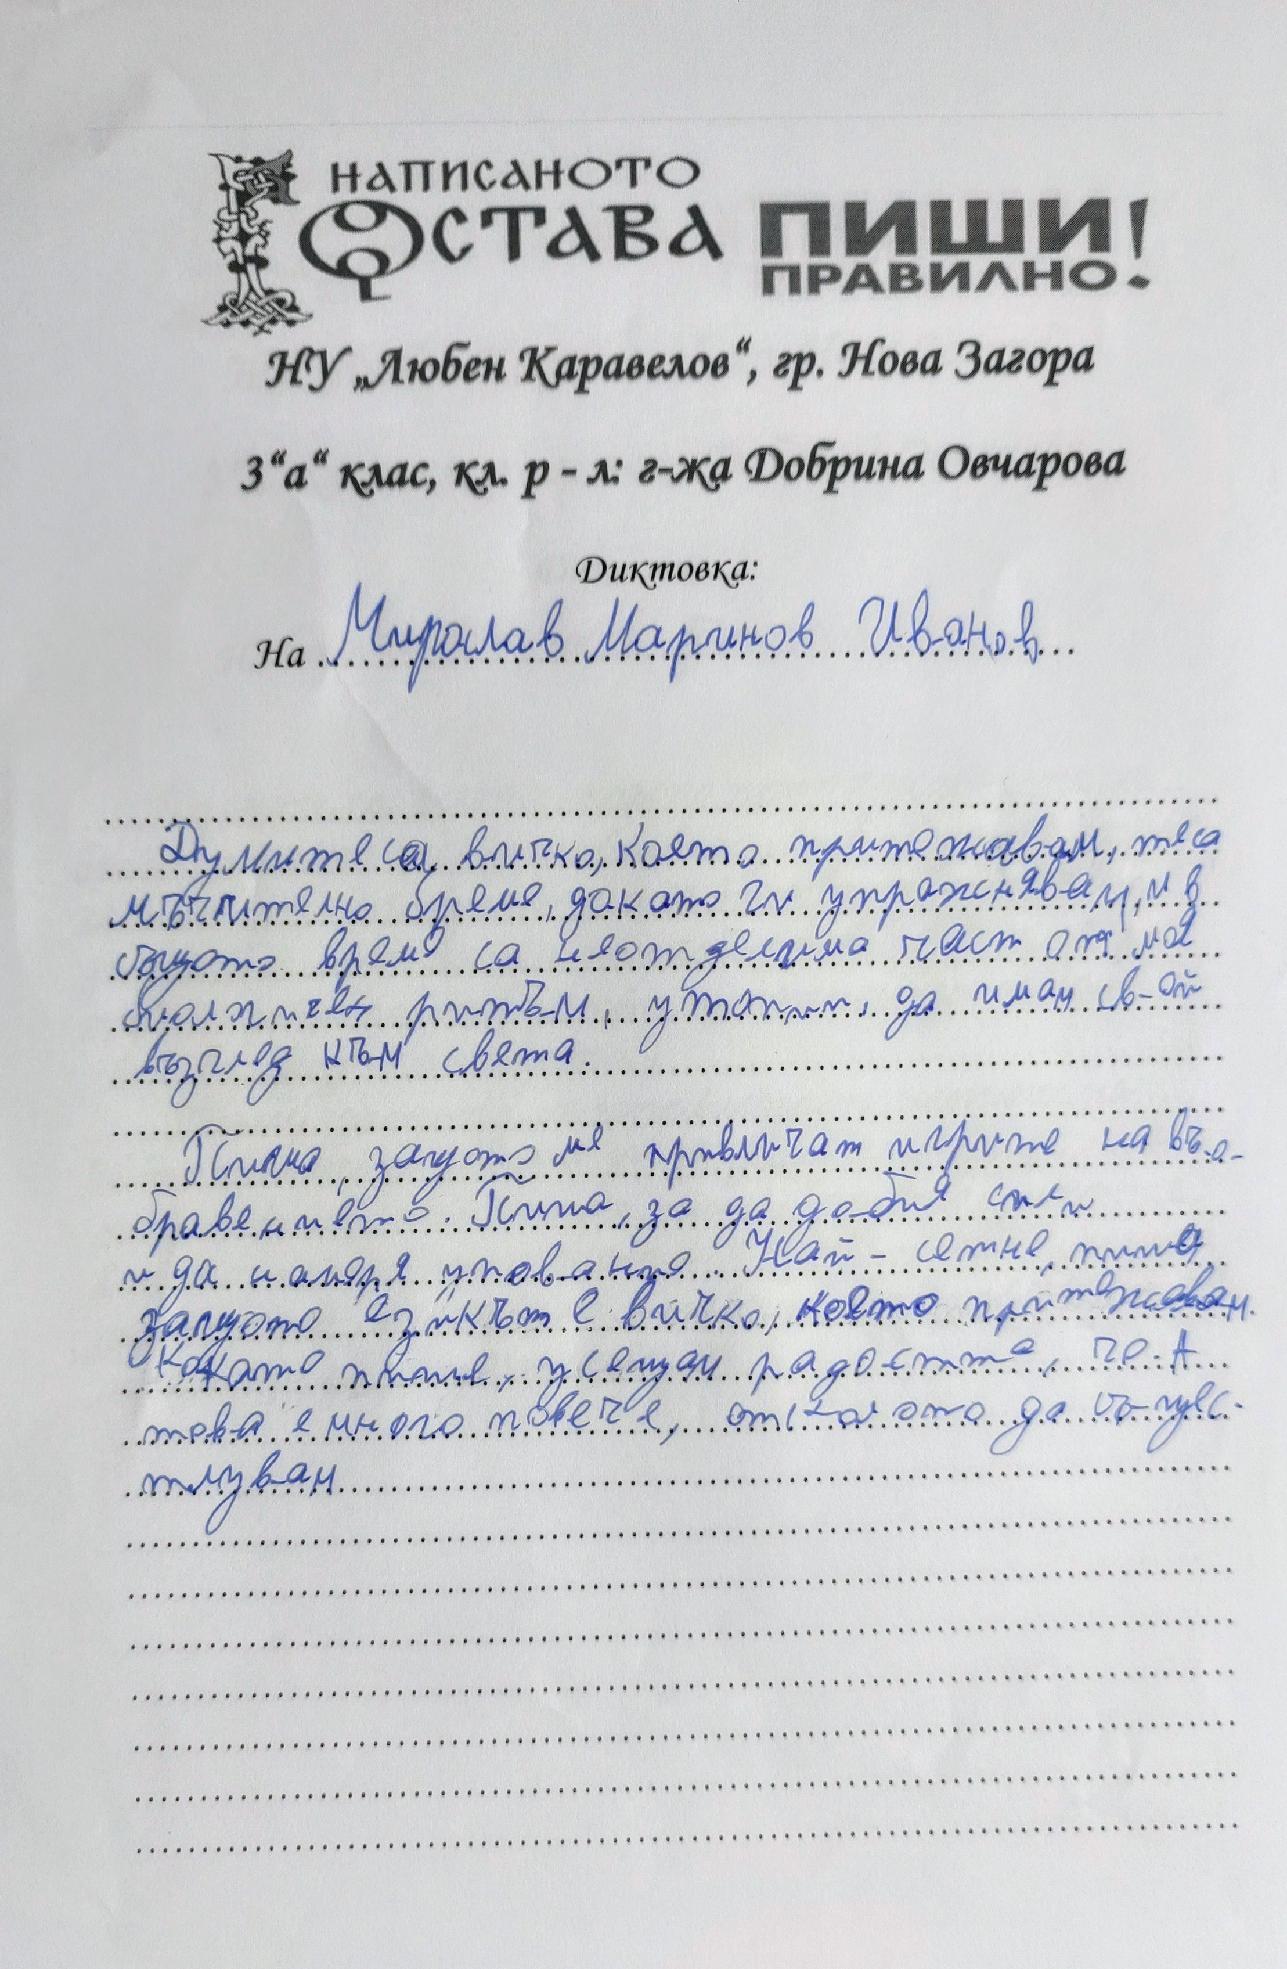 НАПИСАНОТО
ОСТАВА
ПИШИ
ПРАВИЛНО!
НУ „Любен Каравелов“, гр. Нова Загора
3“а“ клас, кл. р - л: г-жа Добрина Овчарова
Диктовка:
На Мирослав Маринов Иванов
Думите са вичко, което притежавам, те са
мъчително бреме, докато ги упражнявам, и в
същото време са неотделима част от моя
ритъм, да имам свой
възглед към света.
Пиша, защото ме привличат игрите на въо-
бражението. Пиша, за да добия сили
и да намеря упование. Най - сетне, пиша
защото езикът е вичко, което притежавам.
Когато пиша, усещам радостта, че. А
това е много повече, отколкото да същес-
твувам